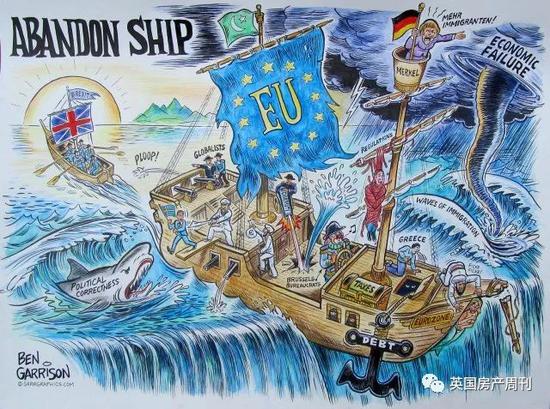 ABANDON SHIP
MEHR
IMMIGRANTEN!
MERKEL
ECONOMIC
FAILURE
BREXIT
EU
PLOOP!
GLOBALISTS
REGULATIONS
WAVES OF IMMIGRATION
POLITICAL
CORRECTNESS
BRUSSELS
BUREAUCRATS
GREECE
TAXES
EUROZONE
DEBT
BEN
GARRISON
© GRRRGRAPHICS.COM
英国房产周刊